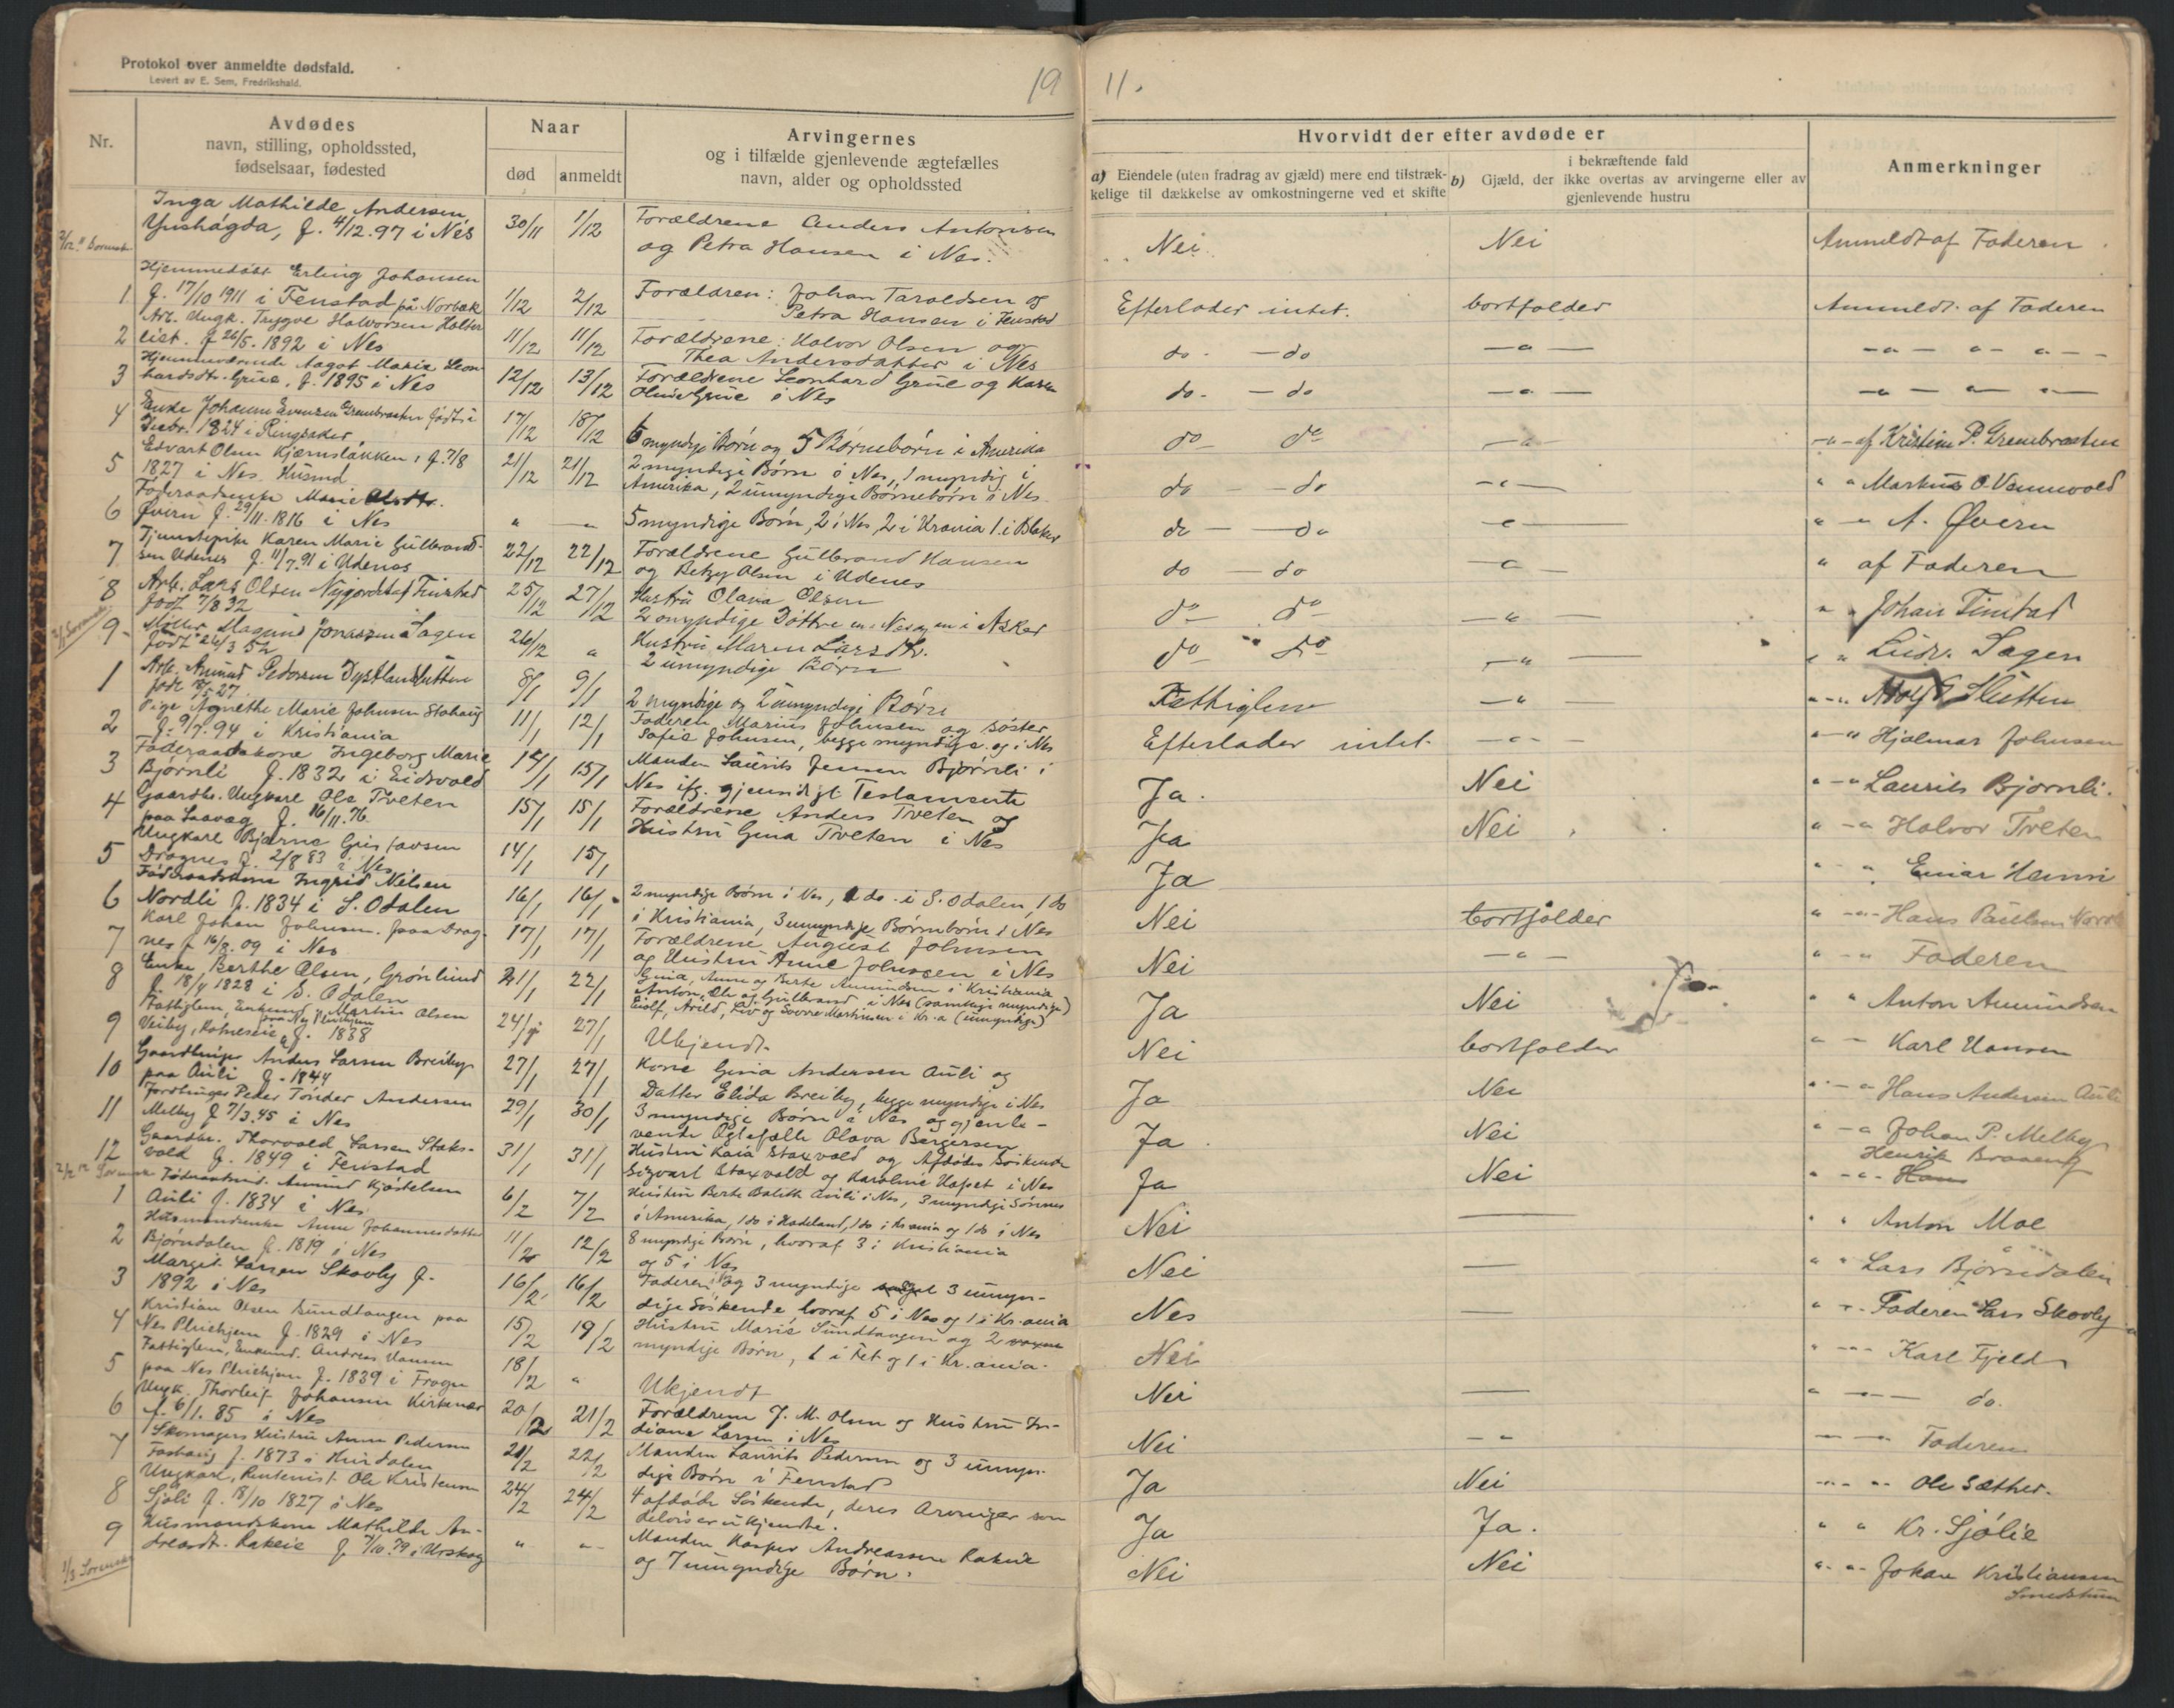 Protokol over anmeldte dødsfald.
Levert av E. Sem, Fredrikshald.
19 11.
Nr.
Avdødes
navn, stilling, opholdssted,
fødselsaar, fødested
Naar
død
anmeldt
Arvingernes
og i tilfælde gjenlevende ægtefælles
navn, alder og opholdssted
Hvorvidt der efter avdøde er
a) Eiendele (uten fradrag av gjæld) mere end tilstræk-
kelige til dækkelse av omkostningerne ved et skifte
i bekræftende fald
b) Gjæld, der ikke overtas av arvingerne eller av
gjenlevende hustru
Anmerkninger
Inga Mathilde Andersen
f. 4/12.97 i Nes
30/11 1/12
Forældrene Anders Antonsen
og Petra Hansen i Nes.
Nei
Nei
Anmeldt af Faderen
1 Hjemmedøbt Erling Johansen
f. 17/10 1911 i Fenstad på Norbæk
1/12 2/12
Forældren: Johan Taraldsen og
Petra Hansen i Fenstad
Efterlader intet.
bortfalder
Anmeldt af Faderen
2 Arb. Ungk. Trygve Halvorsen Holter
f. 26/5. 1892 i Nes
11/12 11/12
Forældrene: Halvor Olsen og
Thea Andersdatter i Nes
do - — do
— " —
— " — " — " — -
3 Hjemmeværende Aagot Marie Leon-
hardsdtr. Grue, f. 1895 i Nes
12/12 13/12
Forældrene Leonhard Grue og Karen
Oline Grue i Nes
do. — do
— " —
— " — " — " —
4 Enke Johanne Evensen Grenebraaten født i
Decbr. 1824 i Ringsaker
17/12 18/12
6 myndige Børn og 5 Børnebørn i Amerika
do — do
— " —
— " — af Kristine P. Grenebraaten
5 Edvart Olsen Kjærnsløkken, f. 7/8
1827 i Nes. Husmd.
21/12 21/12
2 myndige Børn i Nes, 1 myndig i
Amerika, 2 umyndige Børnebørn i Nes
do — do
— " —
" " Markus O. Vennevold
6 Føderaadsenke Marie Olsdtr.
Øvern f. 29/11-1816 i Nes
" — "
5 myndige Børn, 2 i Nes, 2 i Krania 1. i Blaker
do — do
— " —
" — A. Øvern
7 Tjenestepike Karen Marie Gulbrand-
sen Udenes f. 11/7.91 i Udenes
22/12 22/12
Forældrene Gulbrand Hansen
og Betzy Olsen i Udenes
do — do
— " —
" af Faderen
8 Arb. Lars Olsen Nygordst af Finstad
født 7/8 32
25/12 27/12
Hustru Olava Olsen
2 myndige Døttre en i Nes og en i Asker
do — do
— " —
" " Johan Finstad
9 Møller Magnus Jonassen Sagen
født 24/3 52
26/12 "
Hustru Maren Larsdtr.
2 umyndige Børn
do " do
— " —
" " Ludv. Sagen
1 Arb. Amund Pedersen Dystlandslutten
født 18/5 27
8/1 9/1
2 myndige og 2 umyndige Børn
Fattiglem
— " —
" — " Adolf Slutten
2 Pige Agnethe Marie Johnsen Stohaug
f. 9/7.94 i Kristiania
11/1 12/1
Faderen Marius Johnsen og søster
Sofie Johnsen, begge myndige og i Nes
Efterlader intet.
— " —
" — " Hjalmar Johnsen
3 Føderaadskone Ingeborg Marie
Bjørnli f. 1832 i Eidsvold
14/1 15/1
Manden Laurits Jensen Bjørnli i
Nes ifg. gjensidigt Testamente
Ja.
Nei
" — " Laurits Bjørnli.
4 Gaardbr. Ungkarl Ole Tveten
paa Laavag f. 16/11.76
15/1 15/1
Forældrene Anders Tveten og
Hustru Gina Tveten i Nes
Ja
Nei
" — " Halvor Tveten
5 Ungkarl Bjarne Gustavsen
Dragnes f. 2/8 83 i Nes
14/1 15/1
Ja
" " Einar
6 Føderaadskone Ingrid Nilsen
Nordli f. 1834 i S. Odalen
16/1 16/1
2 myndige Børn i Nes, 1 do. i S. Odalen, 1 do
i Kristiania, 3 umyndige Børnebørn i Nes
Nei
bortfalder
" — " Hans Paulsen Nordli
7 Karl Johan Johnsen. paa Drag-
nes f. 16/8. 09 i Nes
17/1 17/1
Forældrene August Johnsen
og Hustru Anne Johnsen i Nes
Nei
— " —
" — " Faderen
8 Enke, Berthe Olsen, Grønlund
f. 18/4 1828 i S. Odalen
21/1 22/1
Gina, Anne og Berte Amundsen i Kristiania
Anton, Ole og Gulbrand i Nes (samtlige myndige)
Eiolf, Arild, Liv og Sverre Martinsen i Kr.a (umyndige)
Ja
Nei
" " Anton Amundsen
9 Fattiglem, Enkemd. Martin Olsen
Veiby, f. 1838
paa Nes Pleiehjem
24/1 27/1
Ukjendt.
Nei
bortfalder
" — Karl Hansen
10 Gaardbruger Anders Larsen Breiby
paa Auli f. 1844
27/1 27/1
Kone Gina Andersen Auli og
Datter Elida Breiby, begge myndige i Nes
Ja
Nei
" — " Hans Andersen Auli
11 Jordbruger Peder Tønder Andersen
Melby f. 7/3.45 i Nes
29/1 30/1
3 myndige Børn i Nes og gjenle-
vende Ægtefælle Olava Bergersen
Ja
Nei
" — " Johan P. Melby
12 Gaardbr. Thorvald Larsen Staks-
vold f. 1849 i Fenstad
31/1 31/1
Hustru Kaia Staxvold og Afdødes Søskende
Sigvart Staxvold og Karoline Hapet i Nes
Ja
Nei
Henrik Braaeng
" — " Hans
1 Føderaadsmd. Amund Kjøstelsen
Auli f. 1834 i Nes
6/2 7/2
Hustru Berte Bolette Auli i Nes, 3 myndige Sønner
i Amerika, 1 do i Hadeland, 1 do i Kr.ania og 1 do i Nes
Nei
—
" " Anton Moe
2 Husmandsenke Anne Johannesdatter
Bjørndalen f. 1819 i Nes
11/2 12/2
8 myndige Børn, hvoraf 3 i Kristiania
og 5 i Nes
Nei
—
" " Lars Bjørndalen
3 Margit Larsen Skovly f.
1892 i Nes
16/2 16/2
Faderen, og 3 myndige 3 umyn-
dige Søskende, hvoraf 5 i Nes og 1 i Kr.ania
Nes
—
" — Faderen Lars Skovly
4 Kristian Olsen Sundtangen paa
Nes Pleiehjem f. 1829 i Nes
15/2 19/2
Hustru Marie Sundtangen og 2 voxne
myndige Børn, 1 i Fet og 1 i Kr.ania.
Nei
—
" — " Karl Fjeld
5 Fattiglem, Enkemd. Andreas Hansen
paa Nes Pleiehjem f. 1839 i Frogn
18/2 "
Ukjendt
Nei
—
" — — do.
6 Ungk. Thorleif Johansen Kirkenær
f. 6/1. 85 i Nes
20/2 21/2
Forældrene J. M. Olsen og Hustru In-
diane Larsen i Nes
Nei
- "
— — " Faderen
7 Skomagers Hustru Anne Pedersen
Foshaug f. 1873 i Hurdalen
21/2 22/2
Manden Laurits Pedersen og 3 umyn-
dige Børn i Fenstad
Ja
Nei
Ole Sæther.
8 Ungkarl, Rentenist Ole Kristensen
Sjøli f. 18/10 1827 i Nes
24/2 24/2
4 afdøde Søskende, deres Arvinger som
delvis er ukjendte.
Ja
Ja.
" " Kr. Sjølie
9 Husmandskone Mathilde An-
dreasdt. Rakeie f. 7/10.79 i Urskog
" " -
Manden Kasper Andreassen Rakeie
og 7 umyndige Børn.
Nei
Nei
" - " - Johan Kristiansen
Smedstuen